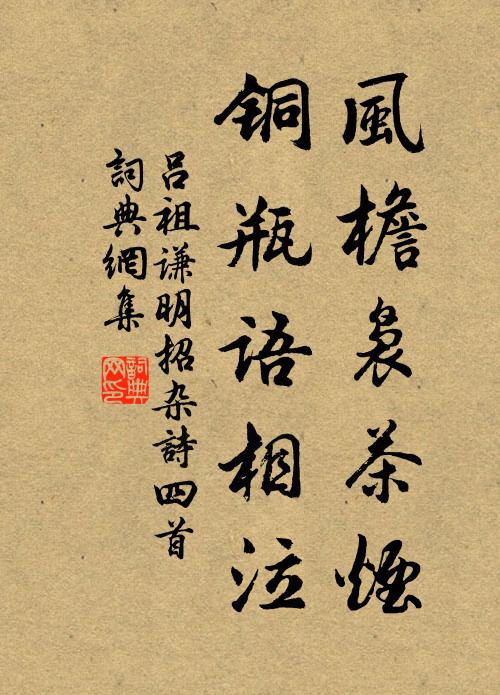 風檐裊茶煙
銅瓶語相泣
吕祖谦明招杂詩四首
詞典網集
詞典
网印